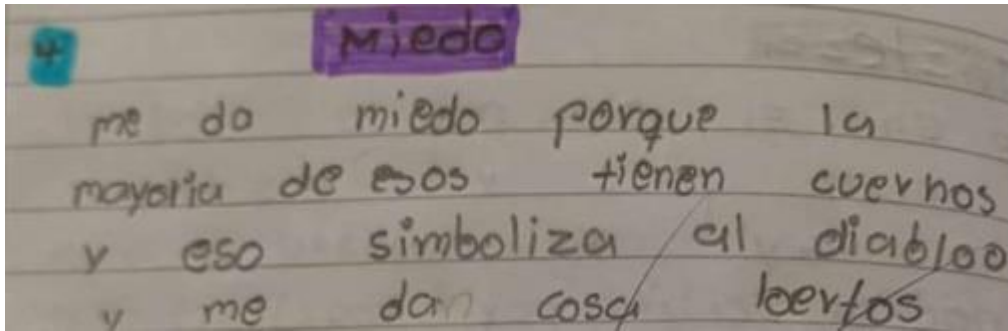 4 Miedo
me da miedo porque la
mayoria de esos tienen cuernos
y eso simboliza al diabloo
y me dan cosa